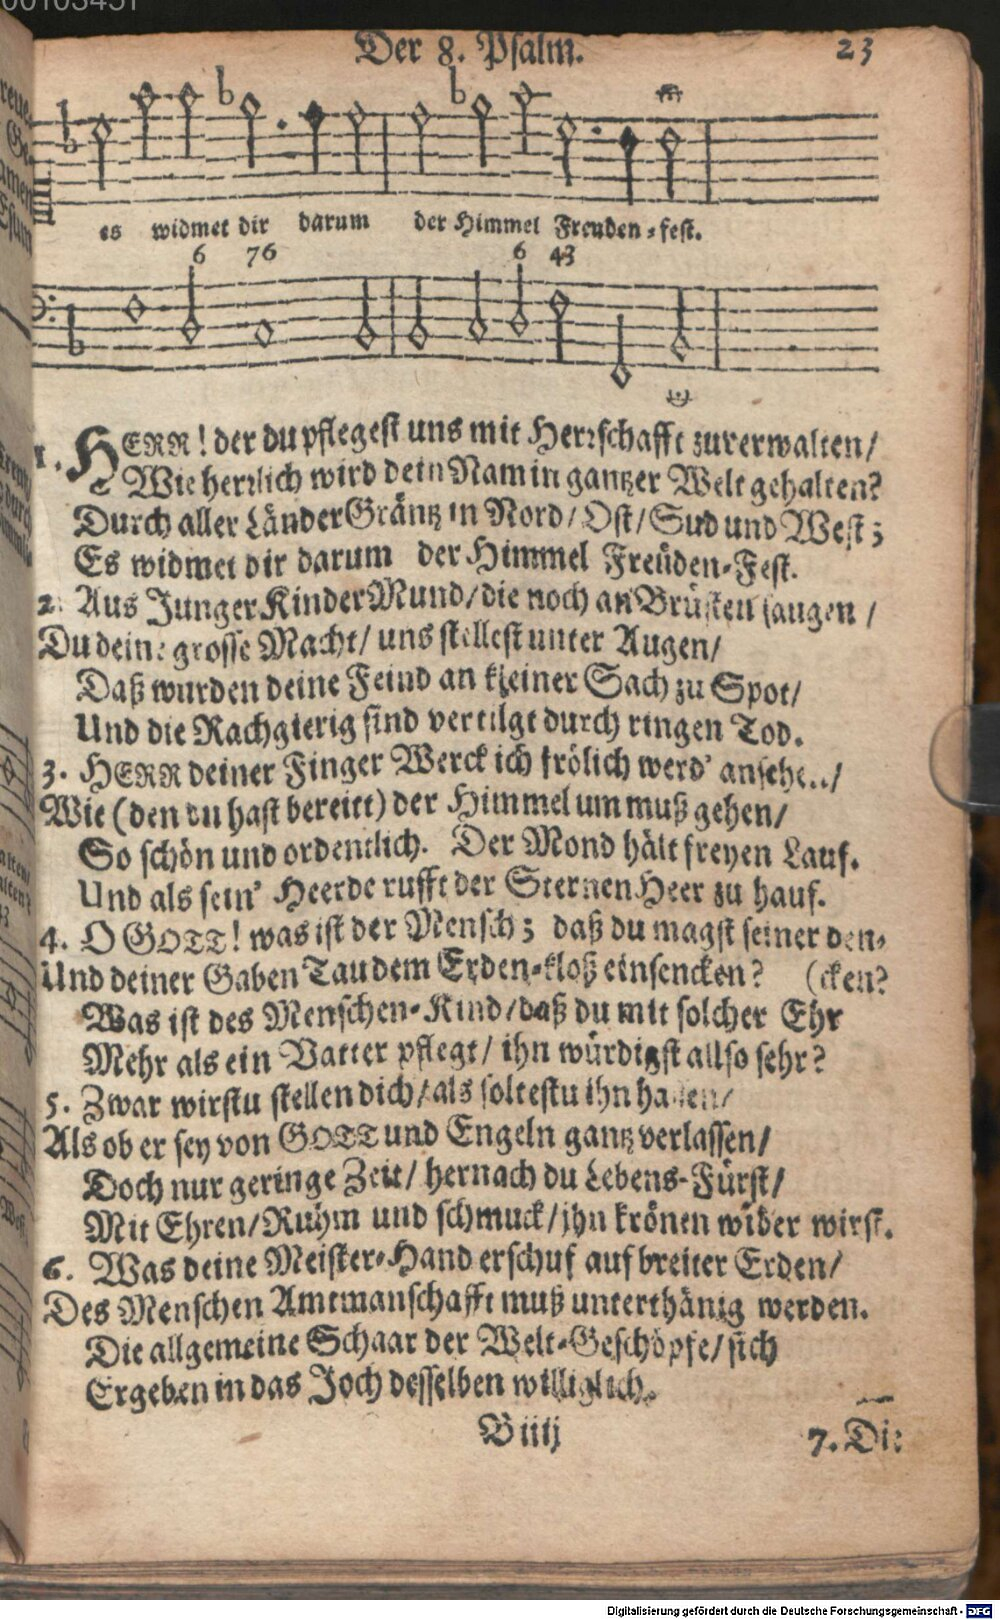 00103451
Der 8. Psalm. 23
es widmet dir darum der Himmel Freuden-fest.
6 76 6 43
1. HERR! der du pflegest uns mit Herrschafft zu verwalten/
Wie herrlich wird dein Nam in gantzer Welt gehalten?
Durch aller Länder Gräntz in Nord/ Ost/ Sud und West;
Es widmet dir darum der Himmel Freüden-Fest.
2. Aus Junger Kinder Mund/ die noch an Brüsten saugen/
Du deine grosse Macht/ uns stellest unter Augen/
Daß wurden deine Feind an kleiner Sach zu Spot/
Und die Rachgierig sind vertilgt durch ringen Tod.
3. HERR deiner Finger Werck ich frölich werd' ansehen/
Wie (den du hast bereitt) der Himmel um muß gehen/
So schön und ordentlich. Der Mond hält freyen Lauf.
Und als sein' Heerde rufft der Sternen Heer zu hauf.
4. O GOTT! was ist der Mensch; daß du magst seiner den-
Und deiner Gaben Tau dem Erden-kloß einsencken? (cken?
Was ist des Menschen-Kind/ daß du mit solcher Ehr
Mehr als ein Vatter pflegt/ ihn würdigst allso sehr?
5. Zwar wirstu stellen dich/ als soltestu ihn hassen/
Als ob er sey von GOTT und Engeln gantz verlassen/
Doch nur geringe Zeit/ hernach du Lebens-Fürst/
Mit Ehren/ Ruhm und schmuck/ ihn krönen wider wirst.
6. Was deine Meister-Hand erschuf auf breiter Erden/
Des Menschen Amtmanschafft muß unterthänig werden.
Die allgemeine Schaar der Welt-Geschöpfe/ sich
Ergeben in das Joch desselben williglich.
B iiij 7. Die
Digitalisierung gefördert durch die Deutsche Forschungsgemeinschaft - DFG